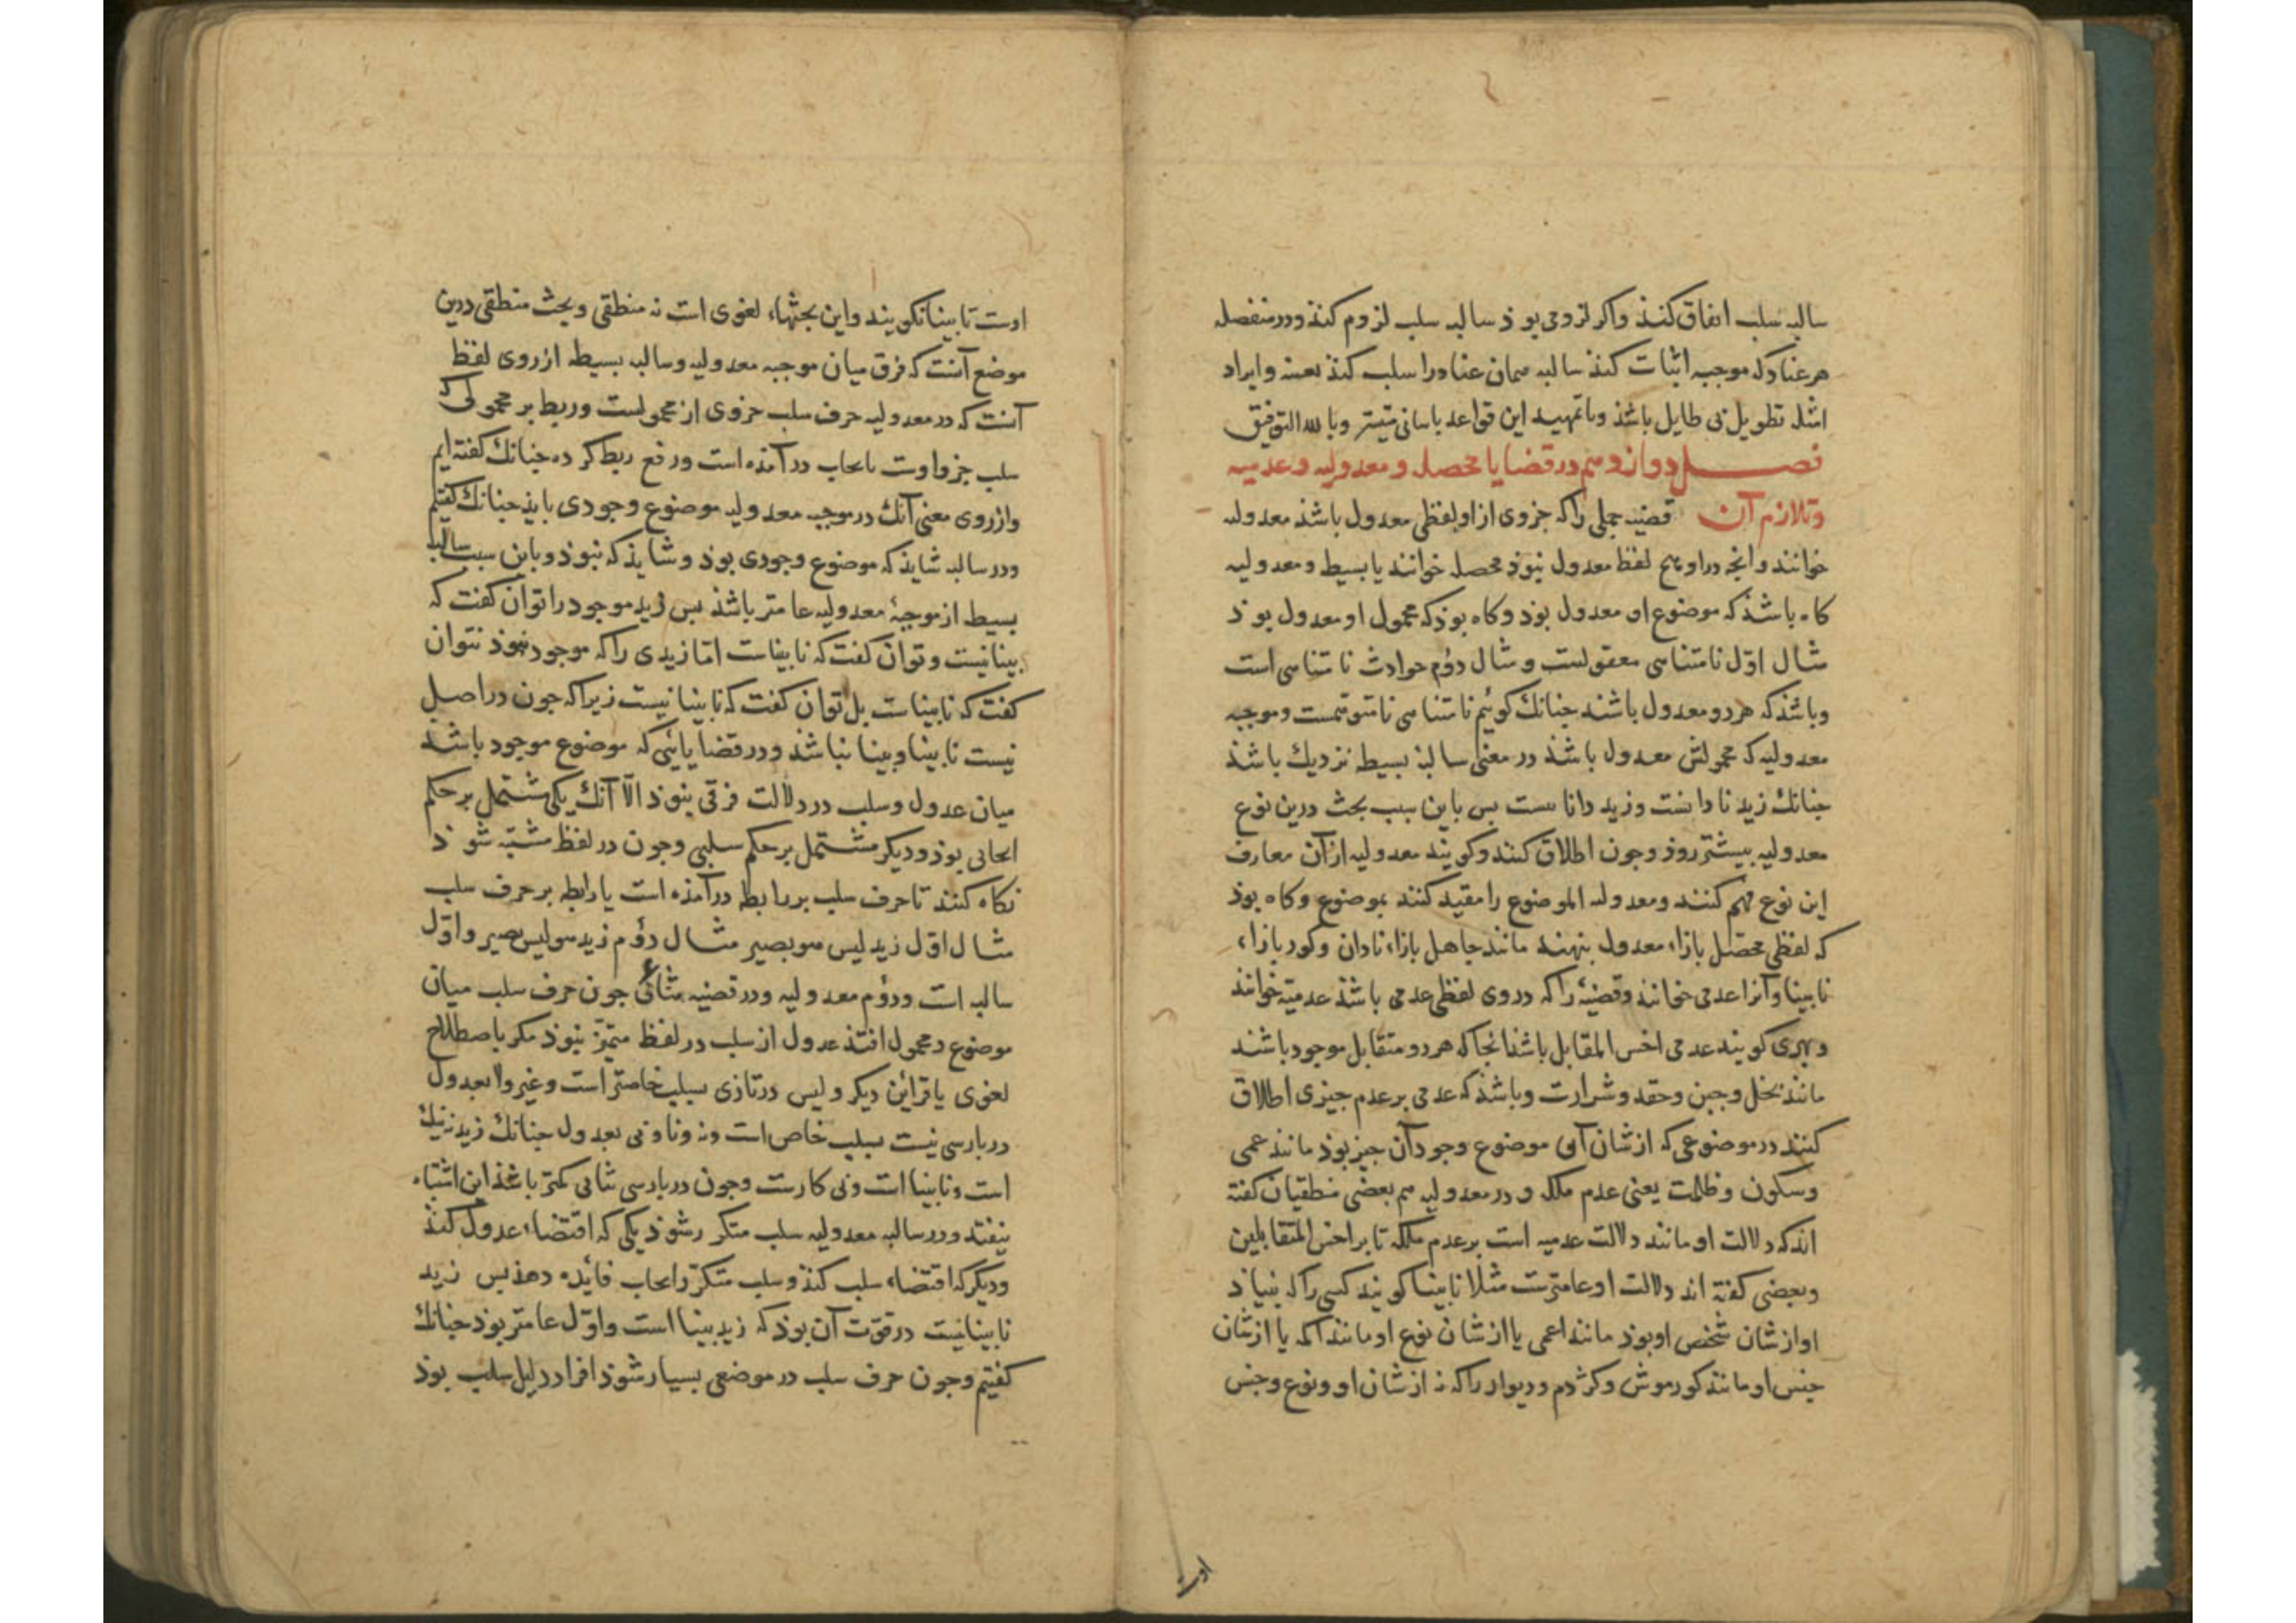 سالبه سلب اتفاق کنذ واکر لزومی بوذ سالبه سلب لزوم کنذ ودر منفصله
هر عناد که موجبه اثبات کنذ سالبه همان عناد را سلب کنذ بعینه وایراد
امثله تطویل بی طایل باشذ وبا تمهید این قواعد باسانی متیسّر وبالله التوفیق
فصل دوازدهم در قضایا محصله ومعدولیه وعدمیه
وتلازم آن قضیه حملی را که جزوی از او لفظی معدول باشذ معدولیه
خوانند وانچه در او هیچ لفظ معدول نبوذ محصله خوانند یا بسیط ومعدولیه
کاه باشذ که موضوع او معدول بوذ وکاه بوذ که محمول او معدول بوذ
مثال اوّل نامتناهی معقولست ومثال دوُم حوادث نامتناهی است
وباشذ که هر دو معدول باشند جنانك کوئیم نامتناهی نامتوهمست وموجبه
معدولیه که محمولش معدول باشذ در معنی سالبهٔ بسیطه نزدیك باشذ
جنانك زید نادانست وزید دانا نیست بس باین سبب بحث درین نوع
معدولیه بیشتر روذ وجون اطلاق کنند وکویند معدولیه از آن معارف
این نوع فهم کنند ومعدولیه الموضوع را مقید کنند بموضوع وکاه بوذ
که لفظی محصّل بازاء معدول بنهند مانند جاهل بازاء نادان وکور بازاء
نابینا وآنرا عدمی خوانند وقضیهٔ را که در وی لفظی عدمی باشذ عدمیّه خوانند
وبهری کویند عدمی اخس المقابل باشذ انجا که هر دو متقابل موجود باشند
مانند بخل وجبن وحقد وشرارت وباشذ که عدمی بر عدم جیزی اطلاق
کنند در موضوعی که از شان آن موضوع وجود آن جیز بوذ مانند عمی
وسکون وظلمت یعنی عدم ملکه ودر معدولیه هم بعضی منطقیان کفته
اند که دلالت او مانند دلالت عدمیه است بر عدم ملکه تا بر اخس المتقابلین
وبعضی کفته اند دلالت او عامترست مثلا نابینا کویند کسی را که بینایی
او از شان شخص او بوذ مانند اعمی یا از شان نوع او مانند اکمه یا از شان
جنس او مانند کورموش وکژدم ودیوار را که نه از شان او ونوع وجنس
اوست
اوست تا بینا نکویند واین بحثهاء لغوی است نه منطقی وبحث منطقی درین
موضع آنست که فرق میان موجبه معدولیه وسالبه بسیطه از روی لفظ
آنست که در معدولیه حرف سلب جزوی از محمولست وربط بر محمولی که
سلب جزو اوست بایجاب در آمذه است ورفع ربط کرده جنانك کفته ایم
واز روی معنی آنك در موجبه معدولیه موضوع وجودی بایذ جنانك کفتیم
ودر سالبه شایذ که موضوع وجودی بوذ وشایذ که نبوذ وباین سبب سالبه
بسیط از موجبهٔ معدولیه عامتر باشذ بس زید موجود را توان کفت که
بینا نیست وتوان کفت که نابیناست امّا زیدی را که موجود نبوذ نتوان
کفت که نابیناست بل توان کفت که نابینا نیست زیرا که جون در اصل
نیست نابینا وبینا نباشذ ودر قضایائی که موضوع موجود باشذ
میان عدول وسلب در دلالت فرقی نبوذ الّا آنك یکی مشتمل بر حکم
ایجابی بوذ ودیکر مشتمل بر حکم سلبی وجون در لفظ مشتبه شوذ
نکاه کنند تا حرف سلب بر رابطه درآمذه است یا رابطه بر حرف سلب
مثال اوّل زید لیس هو بصیر مثال دوُم زید هو لیس بصیر واوّل
سالبه است ودوُم معدولیه ودر قضیه ثنائی جون حرف سلب میان
موضوع ومحمول افتذ عدول از سلب در لفظ متمیّز نبوذ مکر باصطلاح
لغوی یا قراین دیکر ولیس در تازی بسلب خاصتر است وغیر ولا بعدول
در بارسی نیست بسلب خاص است ونه ونا وبی بعدول جنانك زید نه نیك
است ونابینا است وبی کارست وجون در بارسی ثنائی کمتر باشذ این اشتباه
نیفتد ودر سالبه معدولیه سلب متکرر شوذ یکی که اقتضاء عدول کنذ
ودیکر که اقتضاء سلب کنذ وسلب متکرّر ایجاب فائده دهذ بس زید
نابینا نیست در قوّت آن بوذ که زید بینا است واوّل عامتر بوذ جنانك
کفتیم وجون حرف سلب در موضعی بسیار شوذ افراد دلیل سلب بوذ